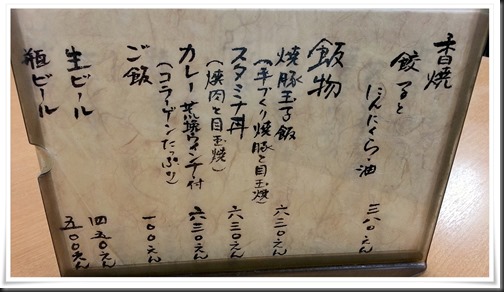 香焼
餃 つると
にんにくら・油 三八〇えん
飯物
焼豚玉子飯 六三〇えん
(手づくり焼豚と目玉焼)
スタミナ丼 六三〇えん
(焼肉と目玉焼)
カレー 荒挽ウィンナ付 六三〇えん
(コラーゲンたっぷり)
ご飯 一〇〇えん
生ビール 四五〇えん
瓶ビール 五〇〇えん